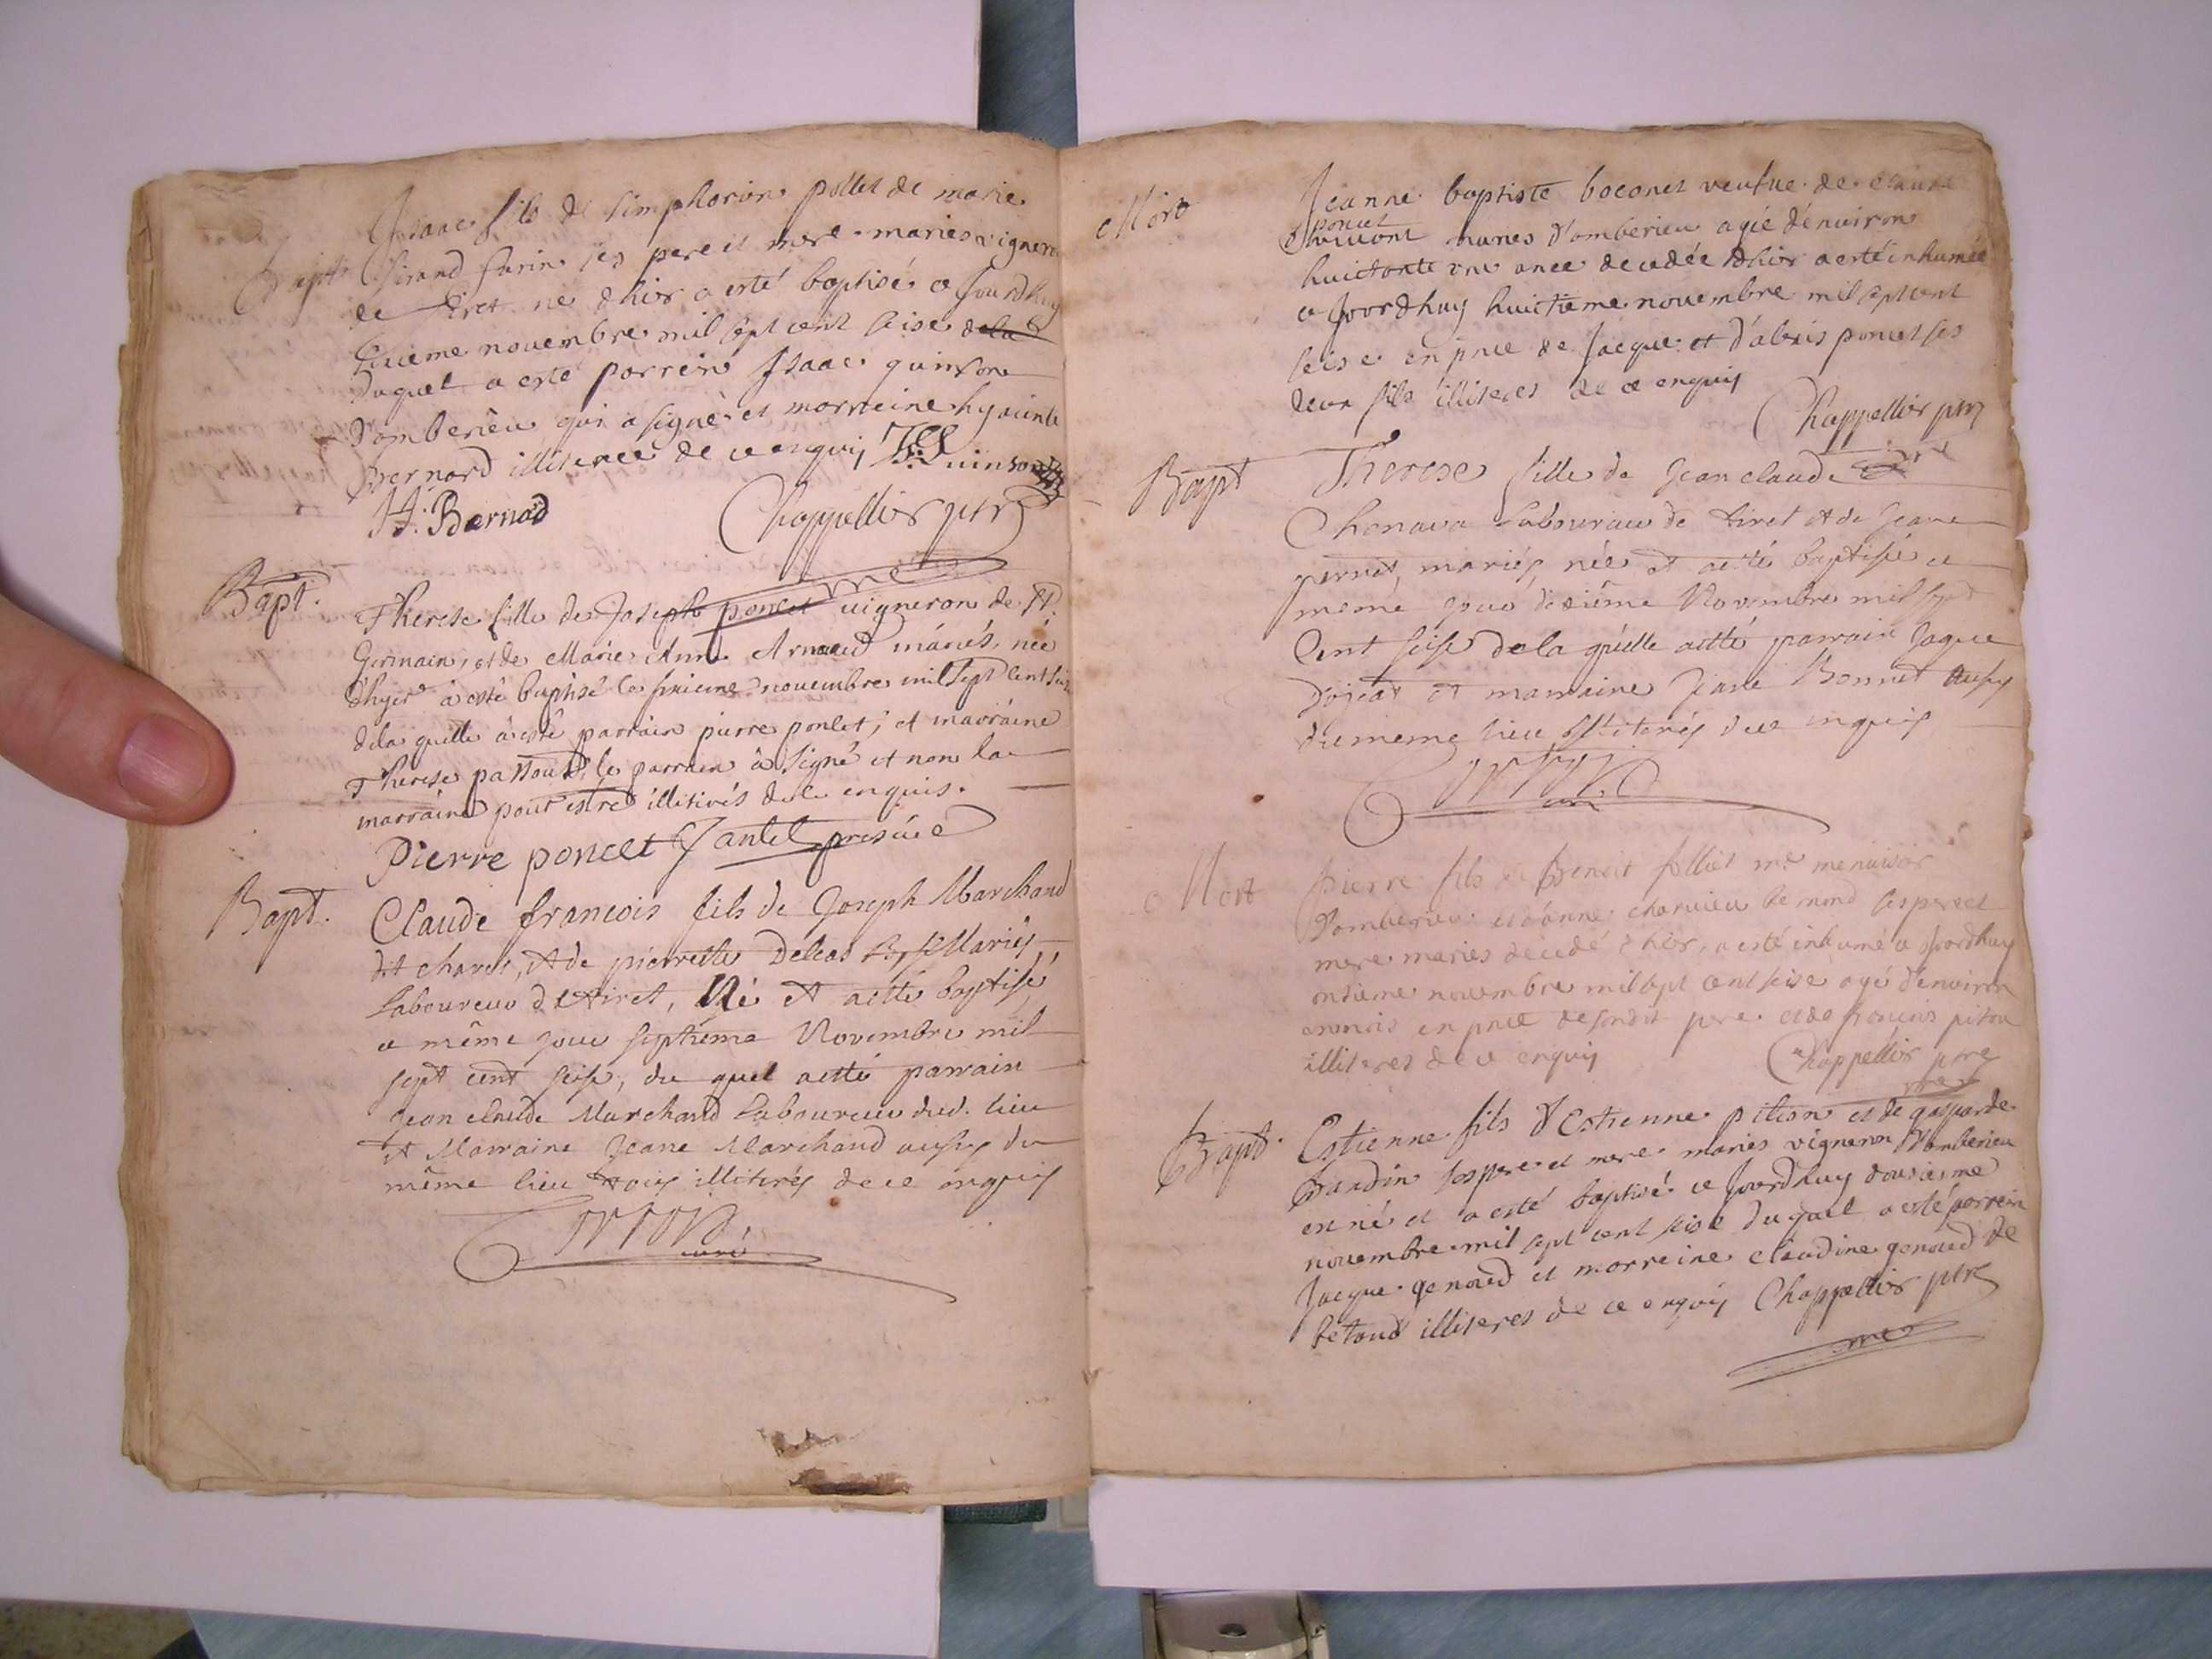 Isaac fils de simphorion pollet de marie
Bapt Sirand farin ses pere et mere maries vigneron
de tiret né d hier a esté baptisé ce Jourdhuy
sixieme novembre mil sept cent seise
duquel a esté parrein Isaac quinson
d'omberieu qui a signé et marreine hyacinte
bernard illiteree de ce enquis J Quinson
H. Bernad Chappellier ptre
Bapt. Therese fille de Joseph poncet vigneron de st.
Germain, et de Marie Anne Arnaud mariés, née
d'hyer à esté baptisé le sixieme novembre mil sept cent seise
dela quelle à esté parrain pierre poncet, et marraine
Therese passout, le parrain à signé et non la
marraine pour estre illitirés de ce enquis.
Pierre poncet Jantet presuice
Bapt. Claude francois fils de Joseph Marchand
dit charles, et de pierrette Deleas Mariés
Laboureur de tiret, Né et a esté baptisé
ce même jour septiéme Novembre mil
sept cent seise, du quel a esté parrain
Jean claude Marchand Laboureur dud. lieu
et Marraine Jeane Marchand aussy du
même lieu tous illitirés de ce enquis
curé
Mort Jeanne baptiste boconet veufve de claude
poncet
d'omberieu agée d'environ
huictante une anee decedée d'hier a esté inhumée
ce Jourdhuy huictieme novembre mil sept cent
seise en pnce de Jacque et d'alexis poncet ses
deux fils illiteres de ce enquis
Chappellier ptre
Bapt Therese fille de Jean claude
Chenava Laboureur de tiret et de Jeane
pernet, mariés, née et a esté baptisée ce
meme jour dixiéme Novembre mil sept
Cent seise de la quelle a esté parrain Jaque
Dojeat et marraine Jeane Bonnet aussy
du meme lieu illiterés de ce enquis
curé
Mort pierre fils de Benoit folliet md menuisier
d'omberieu et d'anne charvieu ses pere et
mere maries decedé d'hier, a esté inhumé ce Jourdhuy
onzieme novembre mil sept cent seise agé d'environ
en pnce desondit pere et de francois piton
illiteres de ce enquis Chappellier ptre
Bapt. Estienne fils d'Estienne pition et de gasparde
Baudin ses pere et mere maries vigneron d'omberieu
est né et a esté baptisé ce Jourdhuy douzieme
novembre mil sept cent seise duquel a esté parrein
Jacque genoud et marreine claudine genoud de
betoud illiteres de ce enquis Chappellier ptre